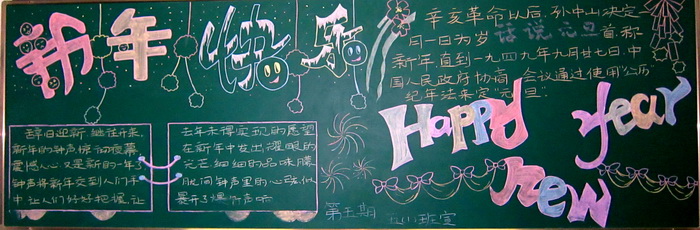 新年快乐
辞旧迎新,继往开来,
新年的钟声惊动夜幕
震憾人心,又是新的一年了
钟声将新年交到人们手
中,让人们好好把握,让
去年未得实现的愿望
在新年中发出耀眼的
光芒,细细的品味
钟声里的心
辛亥革命以后,孙中山决定
月一日为岁 话说元旦 首,称
新年,直到一九四九年九月廿七日,中
国人民政府协商 会议通过使用"公历"
纪年法来定"元旦"
Happy year
new
第五期
班宣